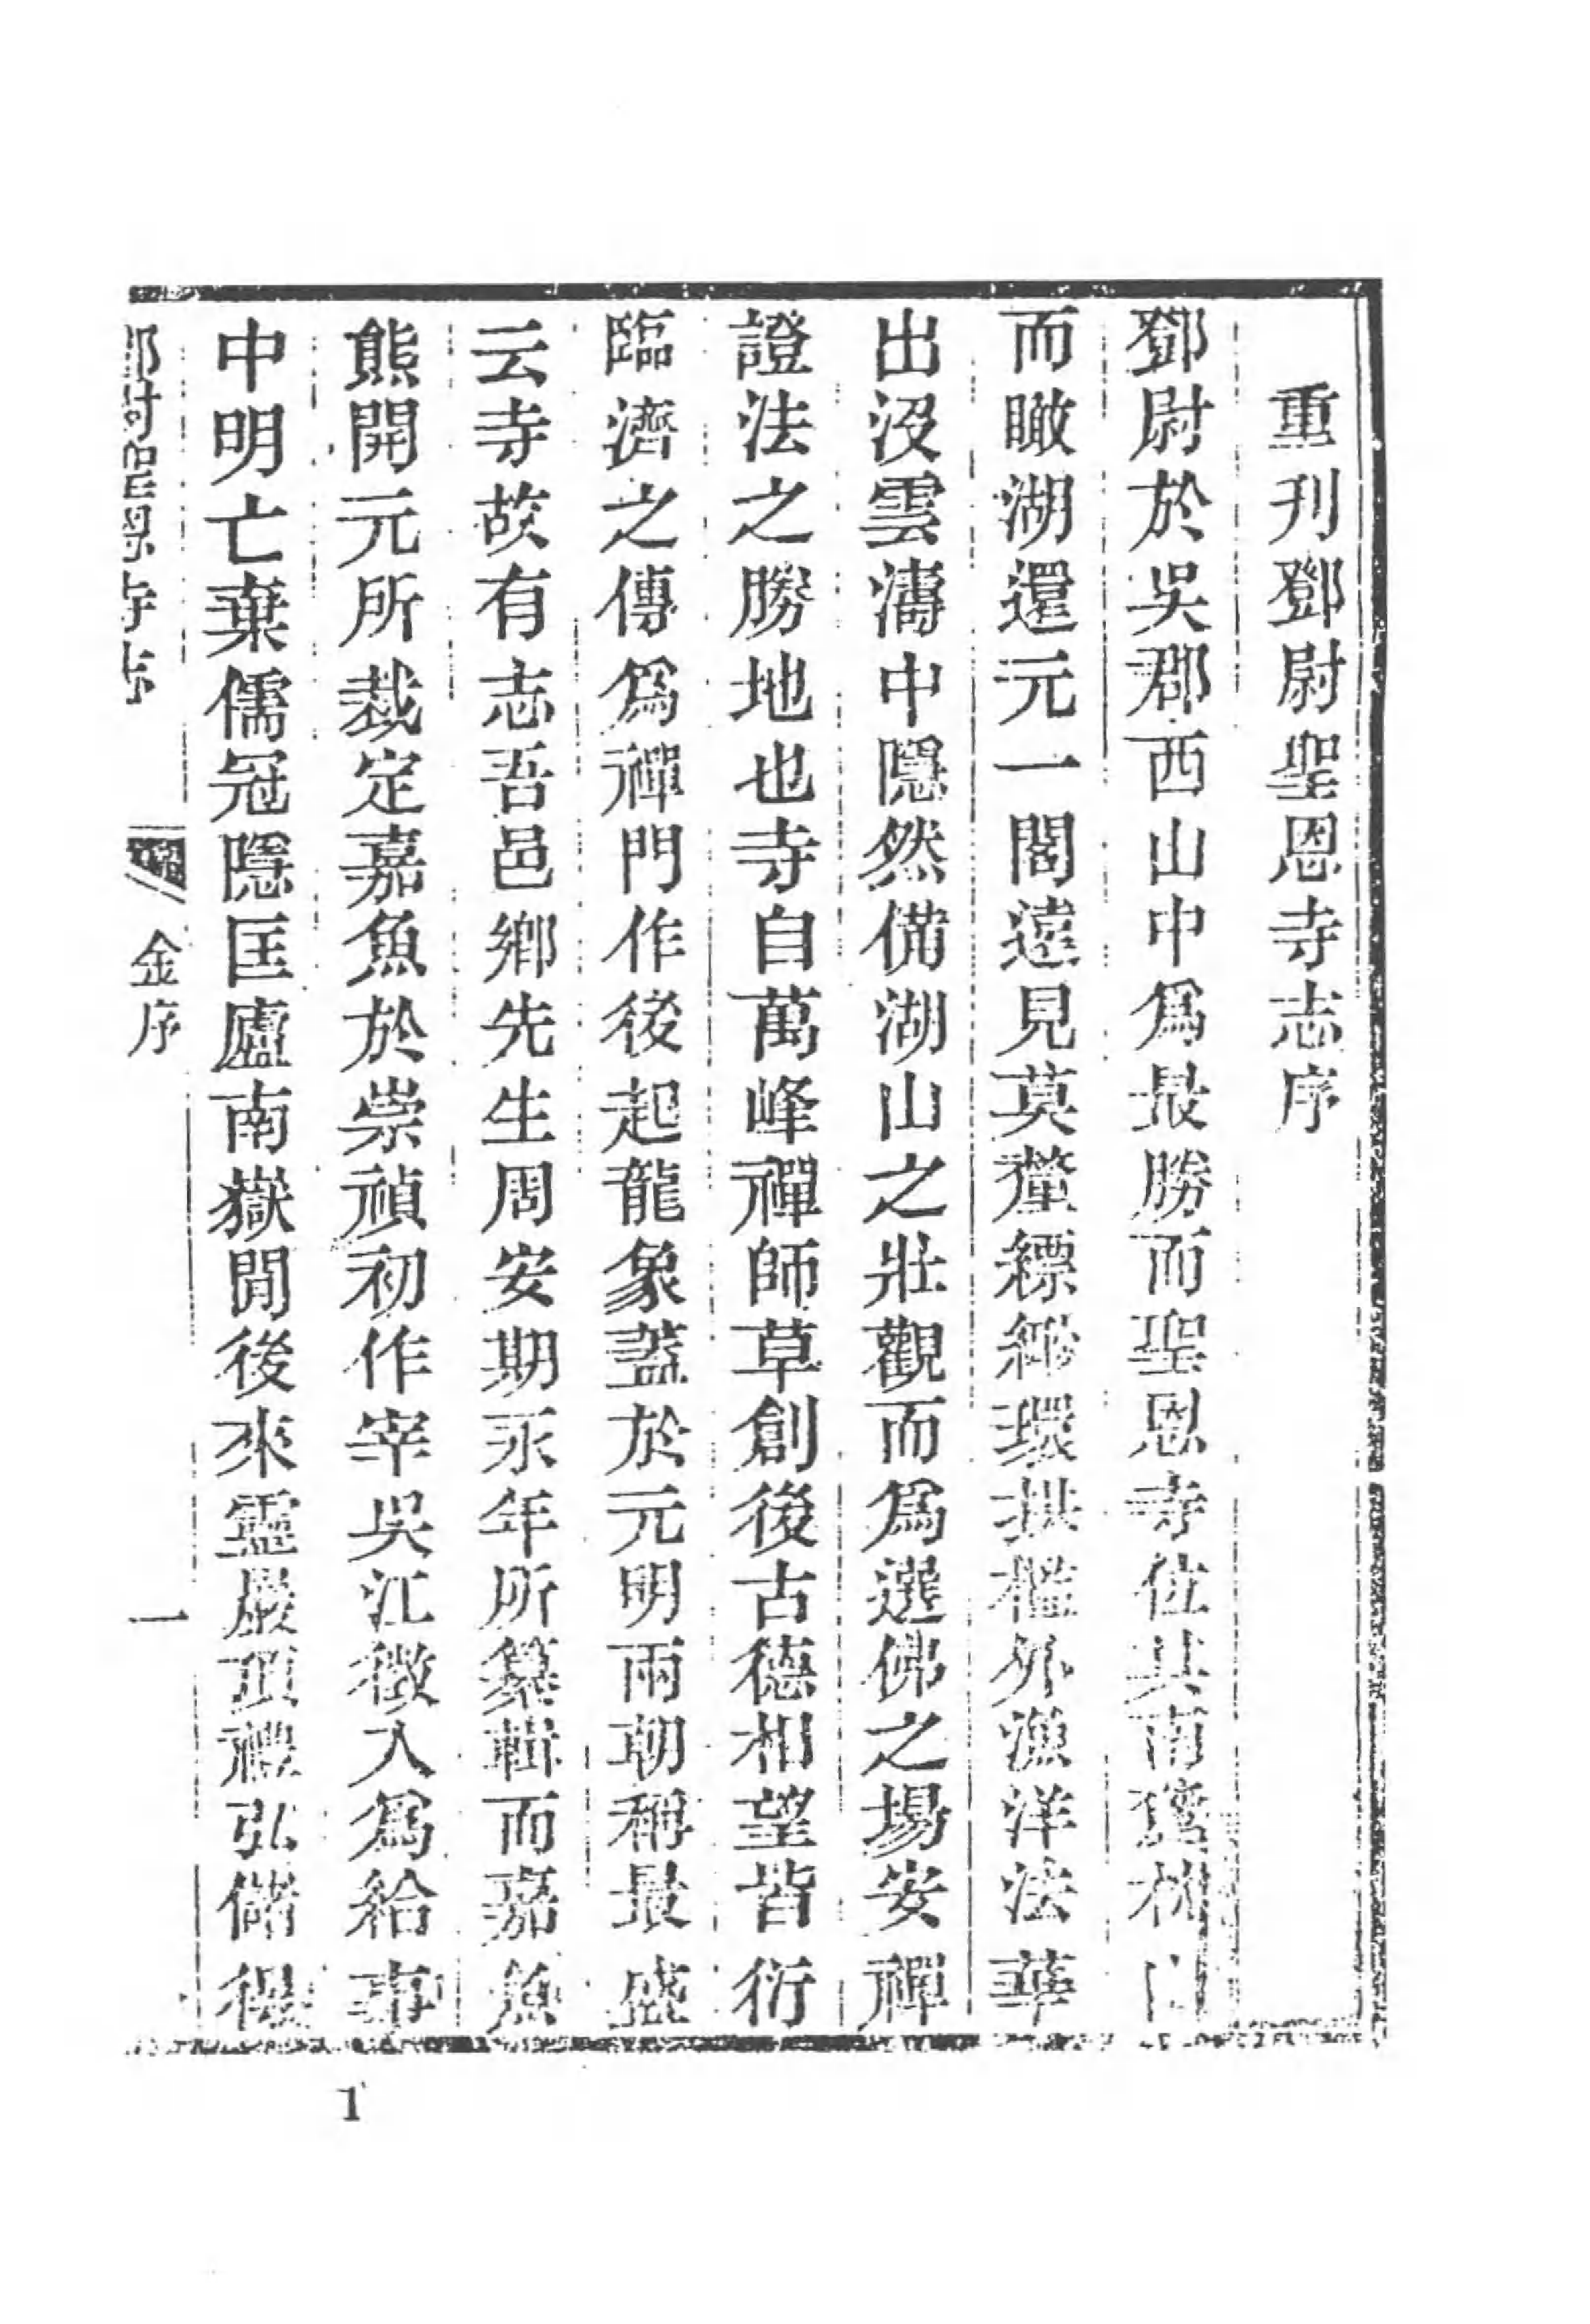 重刊鄧尉聖恩寺志序
鄧尉於吳郡西山中爲最勝而聖恩寺位其南
而瞰湖還元一閣遠見莫釐縹緲環拱檻外漁洋法華
出沒雲濤中隱然備湖山之壯觀而爲選佛之場安禪
證法之勝地也寺自萬峰禪師草創後古德相望皆衍
臨濟之傳爲禪門作後起龍象蓋於元明兩朝稱最盛
云寺故有志吾邑鄉先生周安期永年所纂輯而嘉魚
熊開元所裁定嘉魚於崇禎初作宰吳江徵入爲給事
中明亡棄儒冠隱匡廬南嶽閒後來靈巖頂禮弘儲得
鄧尉聖恩寺志
金序
一
1